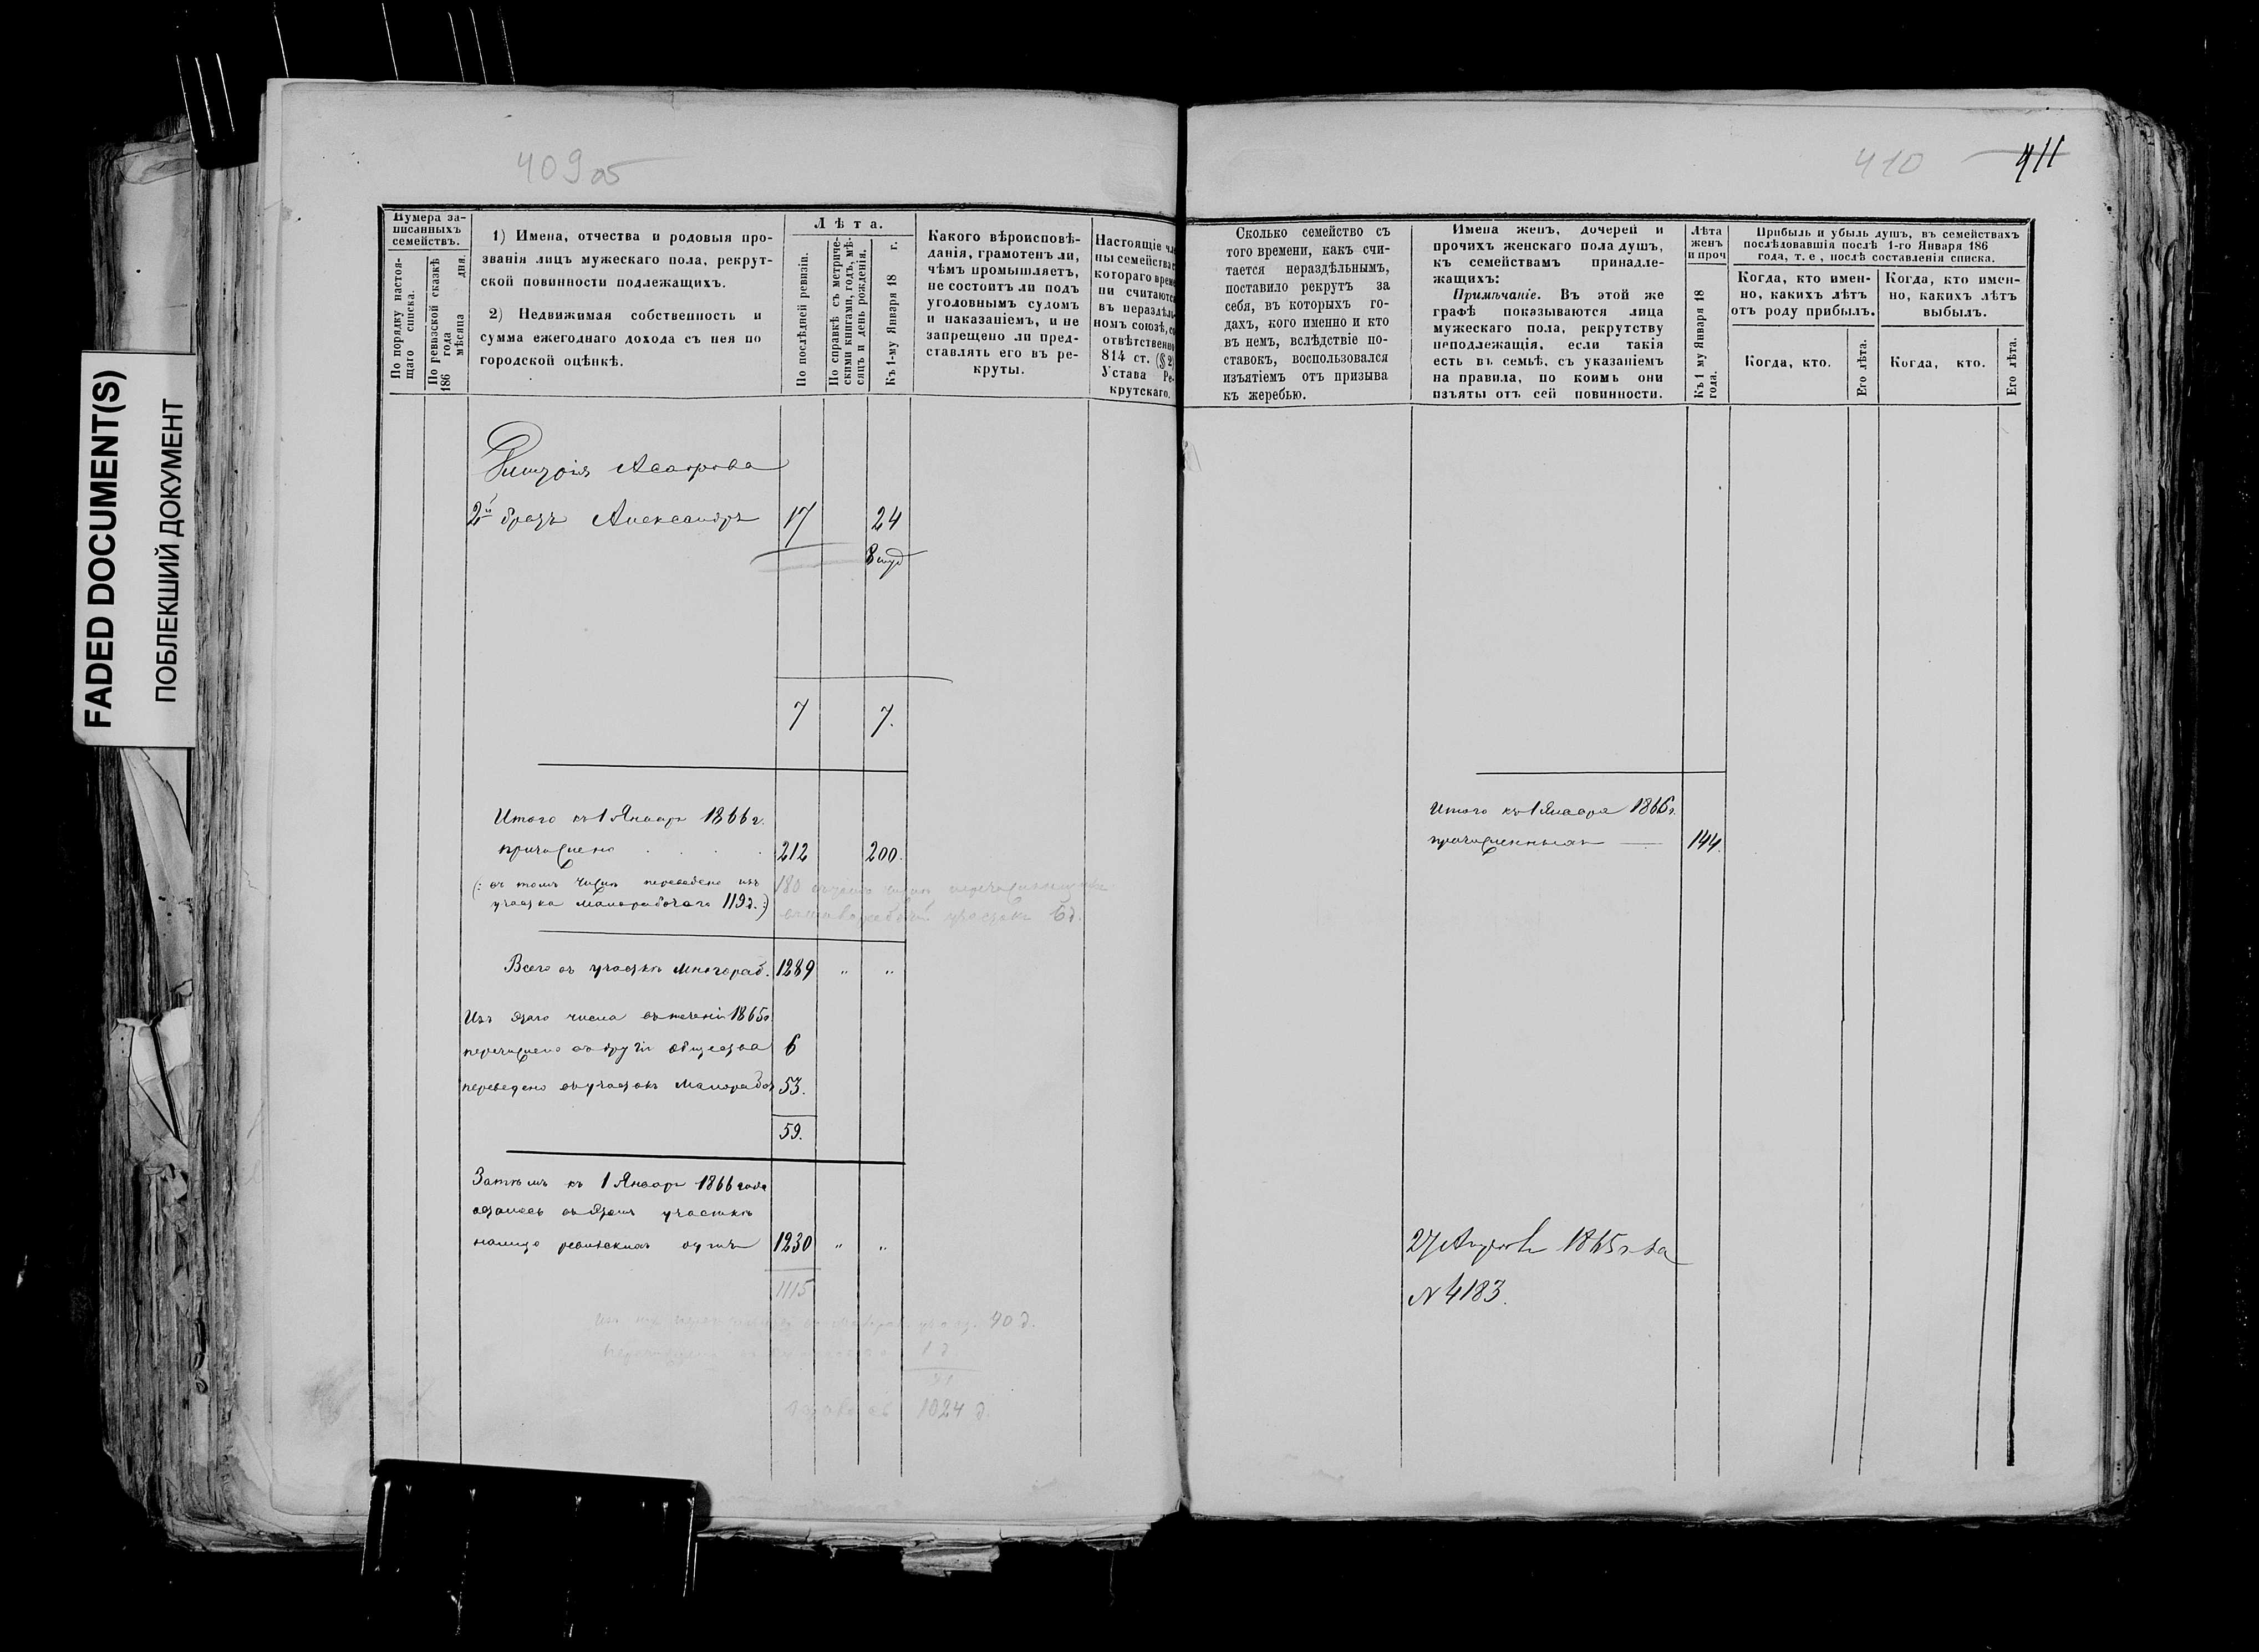 FADED DOCUMENT(S)
ПОБЛЕКШИЙ ДОКУМЕНТ
409 об
Нумера за-
писанныхъ
семействъ.
По порядку настоя-
щаго списка.
По ревизской сказкѣ
186 года мѣсяца дня.
1) Имена, отчества и родовыя про-
званія лицъ мужескаго пола, рекрут-
ской повинности подлежащихъ.
2) Недвижимая собственность и
сумма ежегоднаго дохода съ нея по
городской оцѣнкѣ.
Лѣта.
По послѣдней ревизіи.
По справкѣ съ метриче-
скими книгами, годъ, мѣ-
сяцъ и день рожденія.
Къ 1-му Января 18 г.
Какого вѣроисповѣ-
данія, грамотенъ ли,
чѣмъ промышляетъ,
не состоитъ ли подъ
уголовнымъ судомъ
и наказаніемъ, и не
запрещено ли пред-
ставлять его въ ре-
круты.
Настоящіе чле
ны семейства с
котораго време
ни считаются
въ нераздѣль
номъ союзѣ, со
отвѣтственно
814 ст. (§ 2)
Устава Ре-
крутскаго.
2й братъ Александръ 17 24
7 7.
Итого къ 1 Января 1866 г.
причислено 212 200.
(: въ томъ числѣ переведено изъ
участка Малорабочаго 119 д. :)
180
участокъ 6 д.
Всего въ участкѣ Многораб. 1289 " "
Изъ этого числа въ теченіи 1865 г
перечислено въ другія общества 6
переведено въ участокъ Малорабоч 53.
59.
Затѣмъ къ 1 Января 1866 года
осталось въ этомъ участкѣ
налицо ревизскихъ душъ 1230 " "
1115
40 д.
1 д
1024 д.
410 411
Сколько семейство съ
того времени, какъ счи-
тается нераздѣльнымъ,
поставило рекрутъ за
себя, въ которыхъ го-
дахъ, кого именно и кто
въ немъ, вслѣдствіе по-
ставокъ, воспользовался
изъятіемъ отъ призыва
къ жеребью.
Имена женъ, дочерей и
прочихъ женскаго пола душъ,
къ семействамъ принадле-
жащихъ:
Примѣчаніе. Въ этой же
графѣ показываются лица
мужескаго пола, рекрутству
неподлежащія, если такія
есть въ семьѣ, съ указаніемъ
на правила, по коимъ они
изъяты отъ сей повинности.
Лѣта
женъ
и проч
Къ 1 му Января 18
года.
Прибыль и убыль душъ, въ семействахъ
послѣдовавшія послѣ 1-го Января 186
года, т. е , послѣ составленія списка.
Когда, кто имен-
но, какихъ лѣтъ
отъ роду прибылъ.
Когда, кто имен-
но, какихъ лѣтъ
выбылъ.
Когда, кто.
Его лѣта.
Когда, кто.
Его лѣта.
Итого къ 1 Января 1866 г.
причисленныхъ — 144.
27 1865 г за
N 4183.